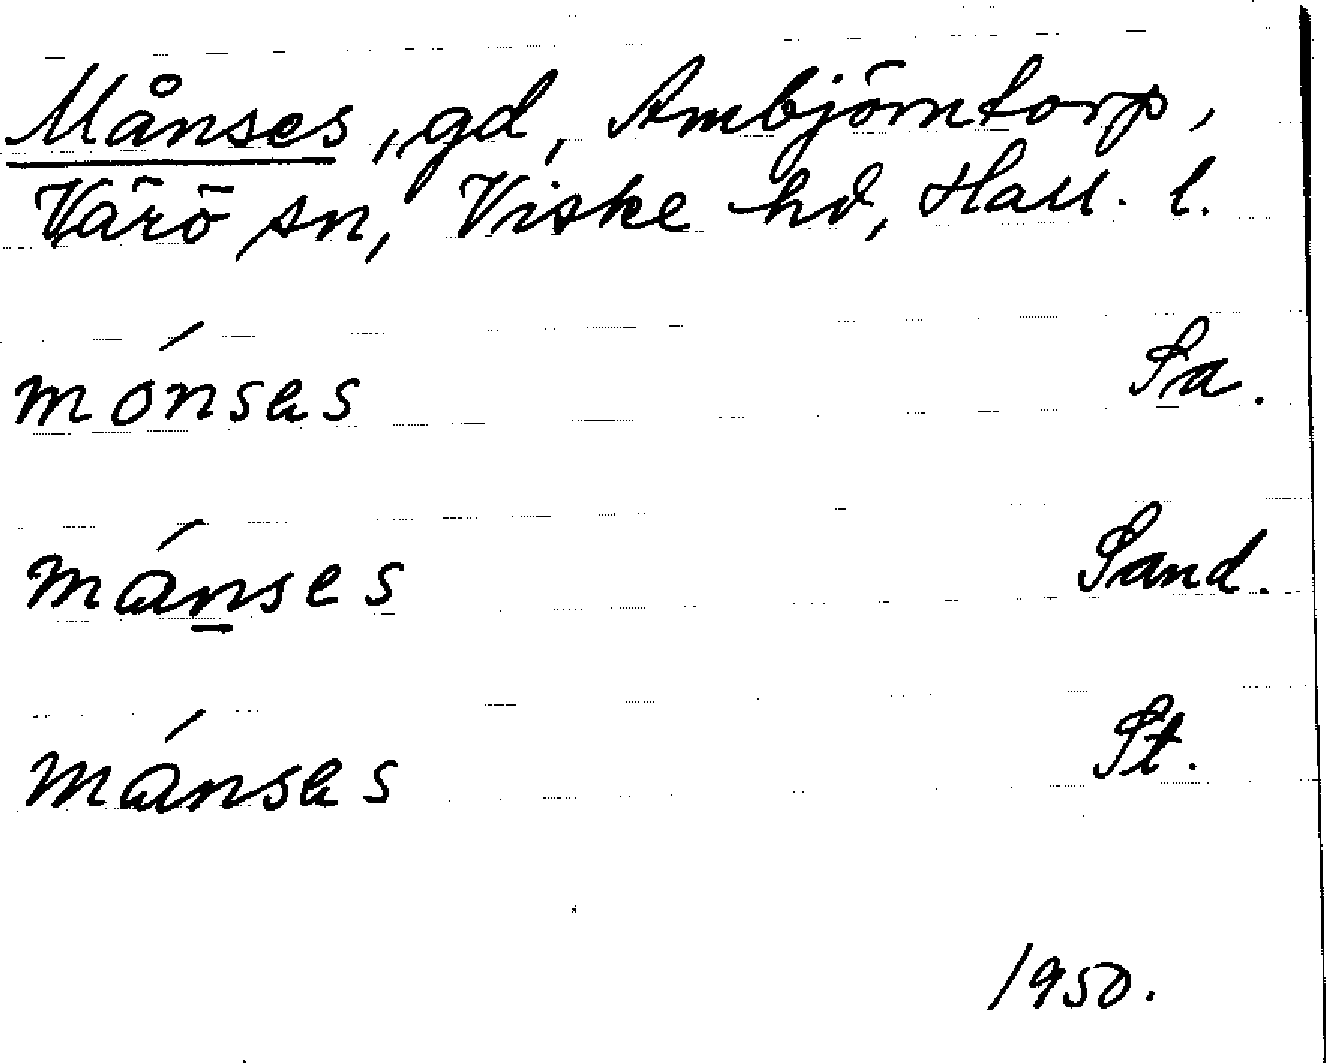 Månses, gd, Ambjörntorp,
Värö sn, Viske hd, Hall. l.
mónsɵs Sa.
mánses Sand.
mánsɵs St.
1950.